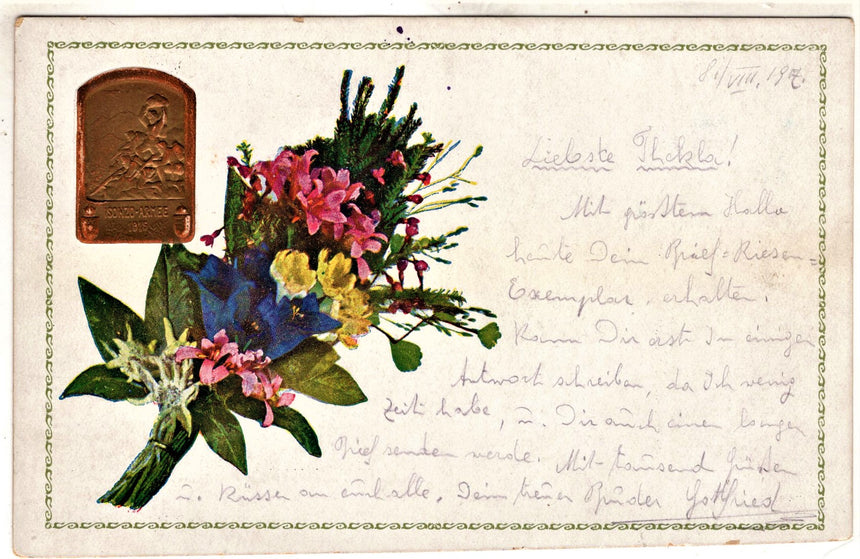 ISONZO-ARMEE
8./VIII. 191
Liebste Thekla!
Mit größtem Hallo
heute Dein Brief-Riesen-
Exemplar, erhalten.
Kann Dir erst in einigen
Antwort schreiben, da ich wenig
Zeit habe, u. Dir auch einen langen
Brief senden werde. Mit tausend Grüßen
u. Küssen an euch alle, Dein treuer Bruder Gottfried